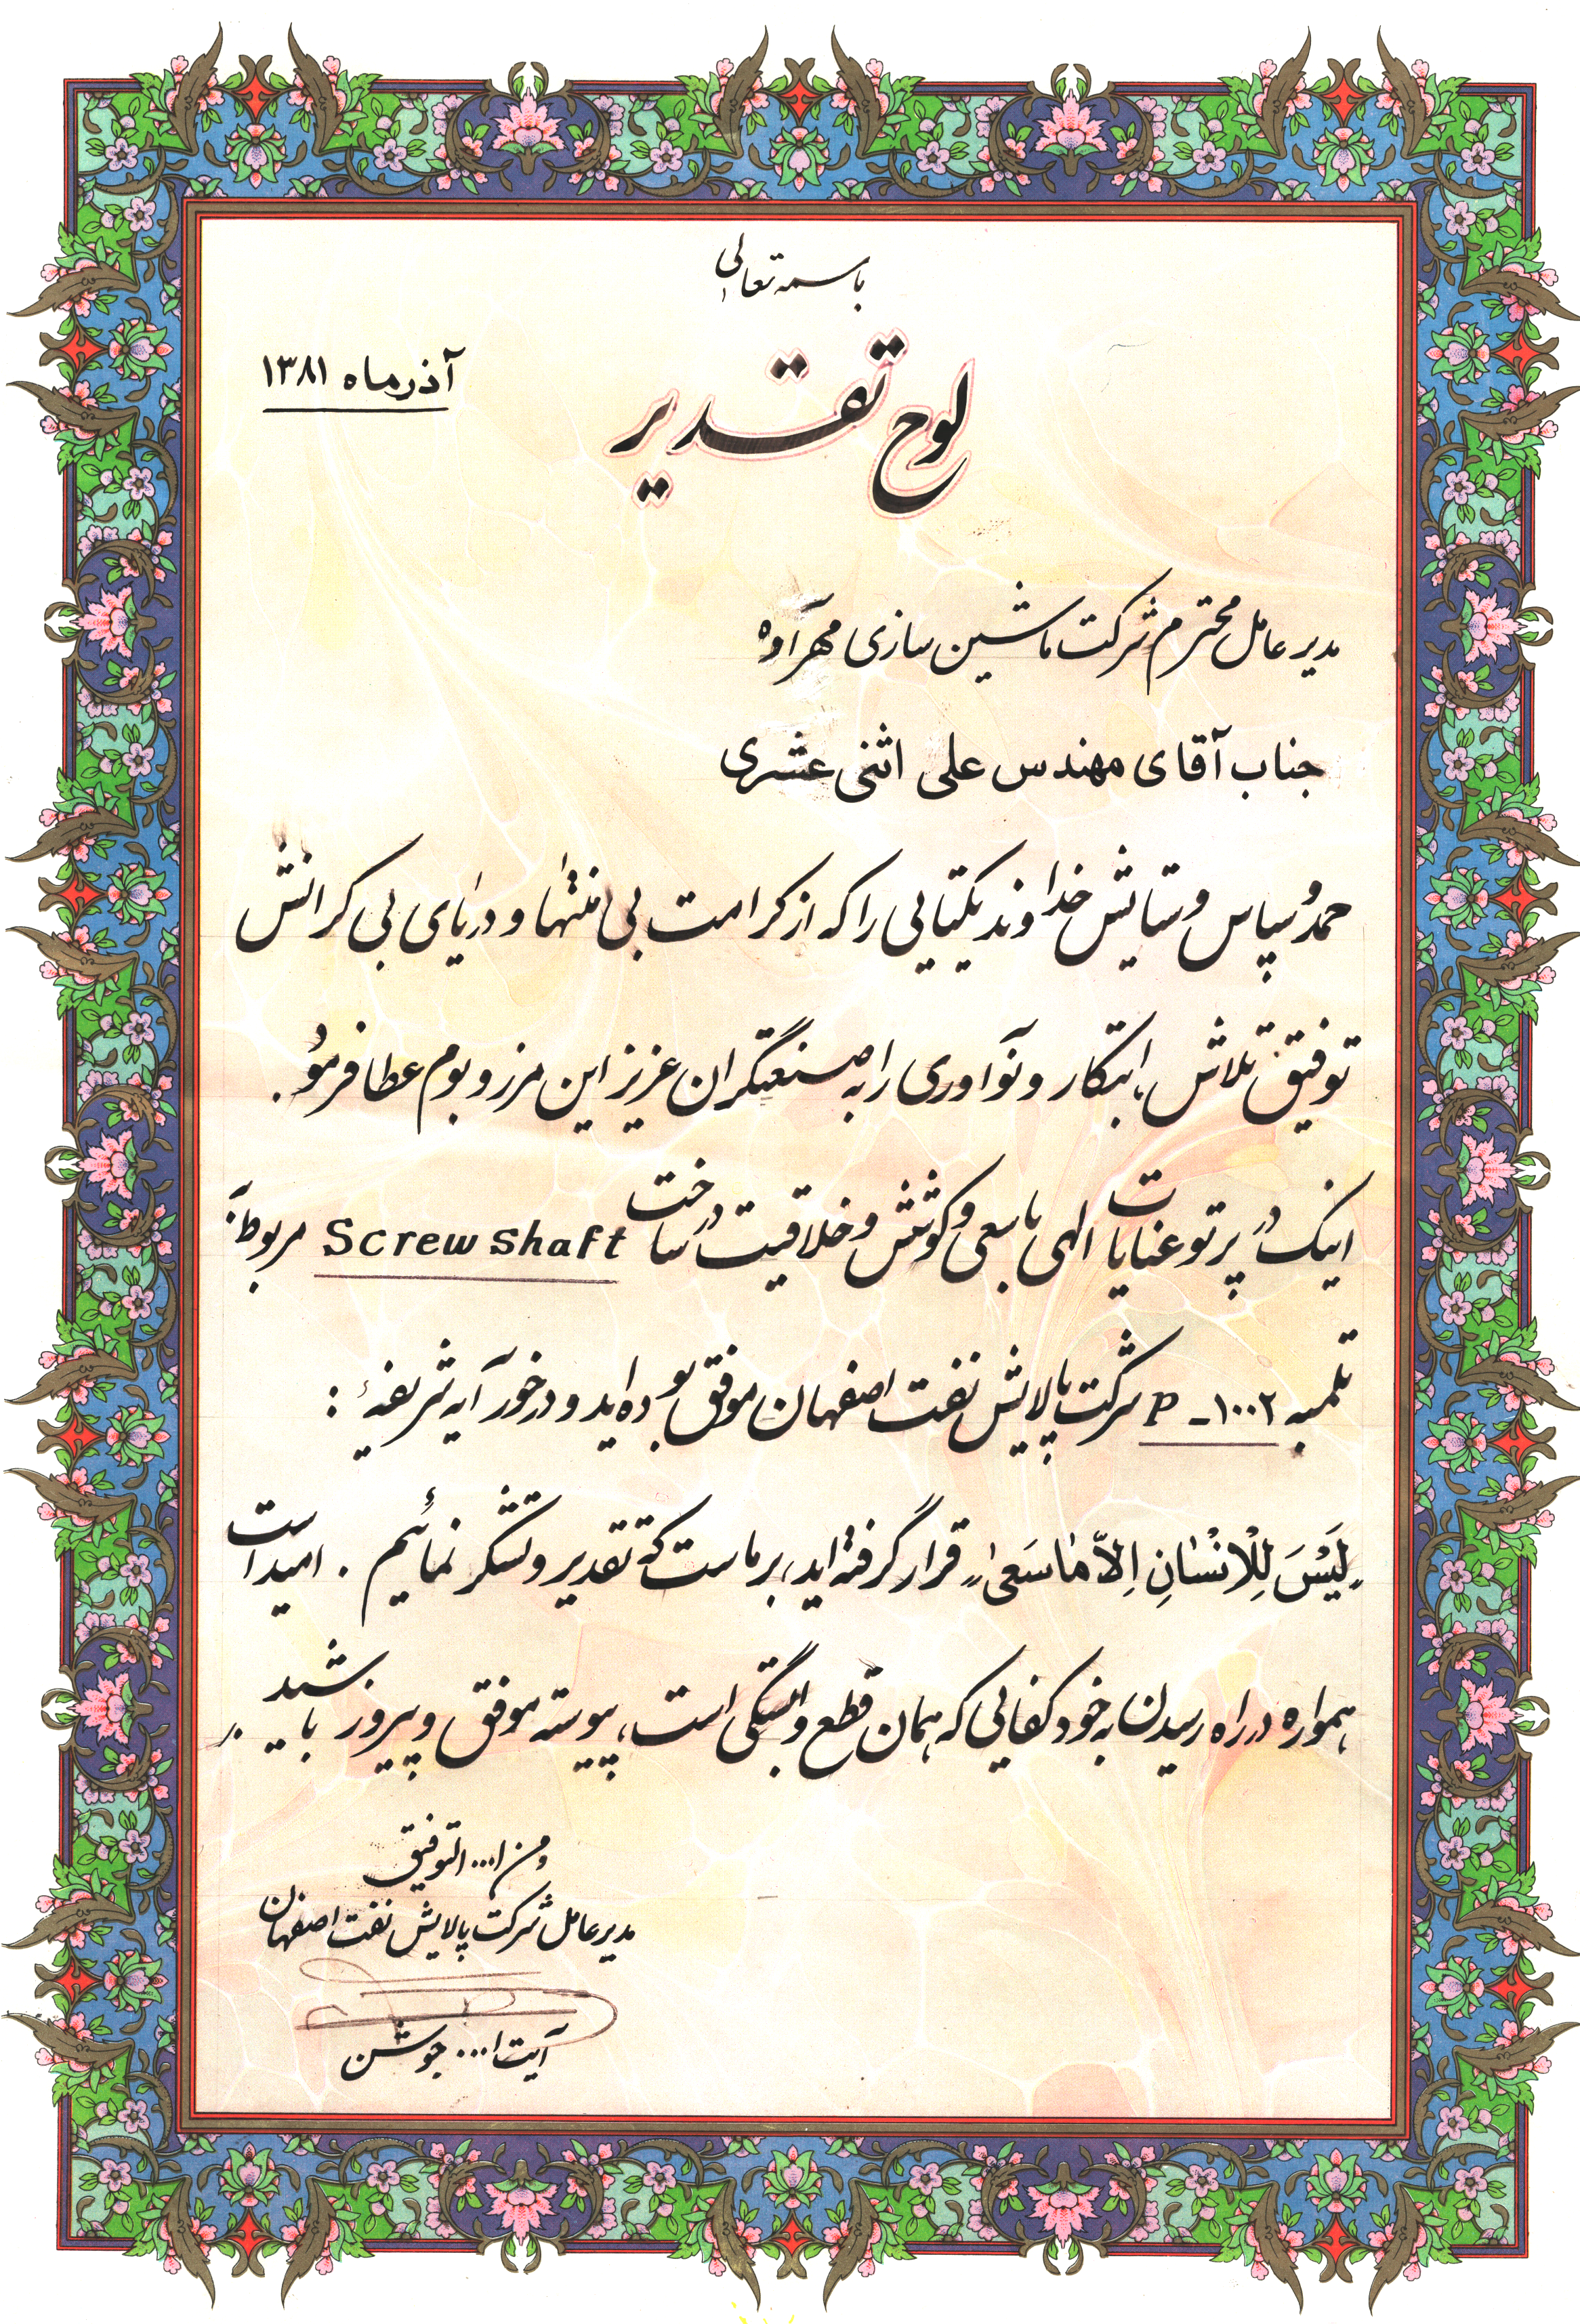 باسمه تعالی
آذرماه ۱۳۸۱
لوح تقدیر
مدیر عامل محترم شرکت ماشین سازی مهرآوه
جناب آقای مهندس علی اثنی عشری
حمد و سپاس و ستایش خداوند یکتایی را که از کرامت بی انتها و دریای بی کرانش
توفیق تلاش، ابتکار و نوآوری را به صنعتگران عزیز این مرز و بوم عطا فرمود.
اینک در پرتو عنایات الهی با سعی و کوشش و خلاقیت در ساخت Screw shaft مربوط به
تلمبه P-۱۰۰۲ شرکت پالایش نفت اصفهان موفق بوده اید و در خور آیه شریفۀ :
لَیْسَ لِلْاِنْسٰانِ اِلاّ مٰا سَعیٰ قرار گرفته اید، بر ماست که تقدیر و تشکر نمائیم . امید است
همواره در راه رسیدن به خودکفایی که همان قطع وابستگی است، پیوسته موفق و پیروز باشید.
و من ا... التوفیق
مدیر عامل شرکت پالایش نفت اصفهان
آیت ا... جوشن